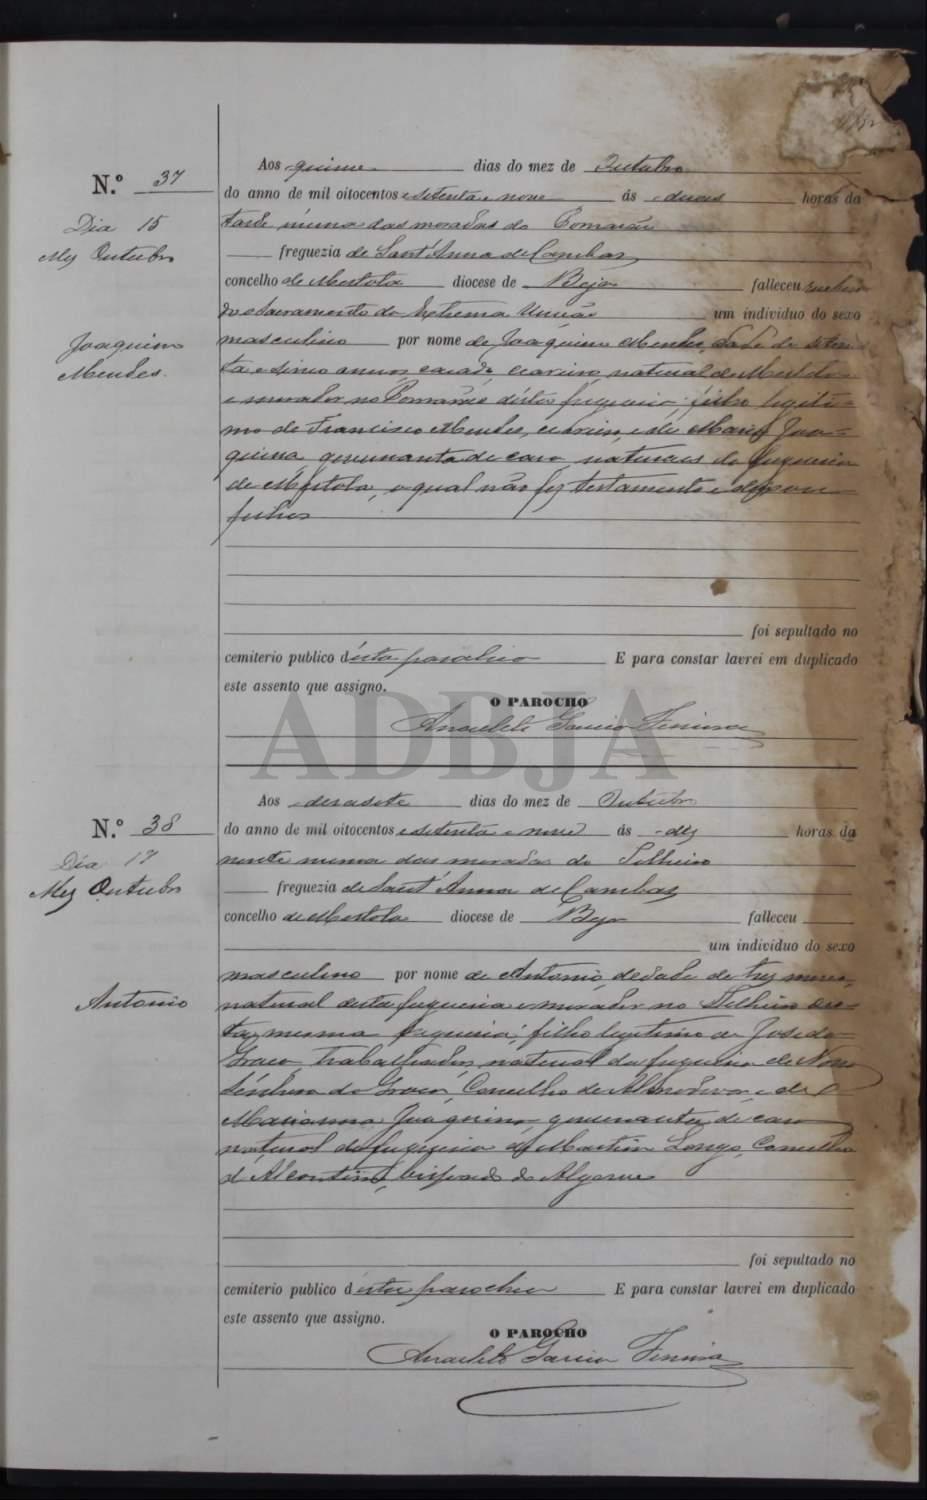 N.º 37
Dia 15
Mez Outubro
Joaquim
Mendes.
Aos quinze dias do mez de Outubro
do anno de mil oitocentos e setenta e nove ás duas horas da
tarde n'uma das moradas do Pomarão
freguezia de Sant'Anna de Cambas
concelho de Mertola diocese de Beja falleceu
do Sacramento da Extrema Unção um individuo do sexo
masculino por nome de Joaquim Mendes, idade de seten-
ta e sinco annos, casado, natural de Mertola
e morador no Pomarão désta freguezia; filho legiti-
mo de Francisco Mendes, e de Maria Joa-
quina, governanta de casa, naturaes da freguezia
de Mertola, o qual não fez testamento e deixou
filhos
foi sepultado no
cemiterio publico d'ésta parochia E para constar lavrei em duplicado
este assento que assigno.
O PAROCHO
Anacleto Garcia Ferreira
ADBJA
N.º 38
Dia 17
Mez Outubro
Antonio
Aos desasete dias do mez de Outubro
do anno de mil oitocentos e setenta e nove ás dez horas da
noute numa das moradas do Telheiro
freguezia de Sant'Anna de Cambas
concelho de Mertola diocese de Beja falleceu
um individuo do sexo
masculino por nome de Antonio, de idade de trez mezes,
natural desta freguezia e morador no Telheiro des-
ta mesma freguezia; filho legitimo de José da
Graça, trabalhador, natural da freguezia de Nossa
Senhora da Graça, Concelho de Almodovar e de
Marianna Joaquina, governanta de casa
natural da freguezia de Martim Longo, Concelho
d'Alcoutim, bispado do Algarve
foi sepultado no
cemiterio publico d'ésta parochia E para constar lavrei em duplicado
este assento que assigno.
O PAROCHO
Anacleto Garcia Ferreira